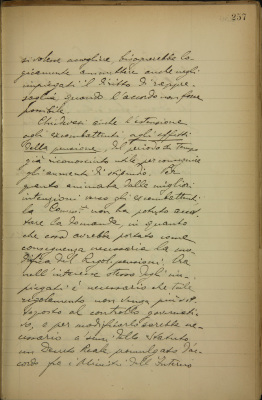 257
si volesse accogliere, bisognerebbe lo
gicamente ammettere anche negli
impiegati il diritto di
quando l'accordo non fosse
possibile.
Chiedevasi anche l'estensione
agli ex combattenti, agli effetti
della pensione, del periodo di tempo
già riconosciuto utile per conseguire
gli aumenti di stipendio. Per
quanto animata dalle migliori
intenzioni verso gli ex combattenti
la Comm. non ha potuto accet
tare la domanda, in quanto
che essa avrebbe portato come
conseguenza necessaria la mo
difica del Regol. pensioni. Ora
nell'interesse stesso degli im
piegati è necessario che tale
regolamento non venga
sposto al controllo governati
vo, e per modificarlo sarebbe ne
cessario a sensi dello Statuto
un Decreto Reale promulgato d'ac
cordo fra i Ministri dell'Interno